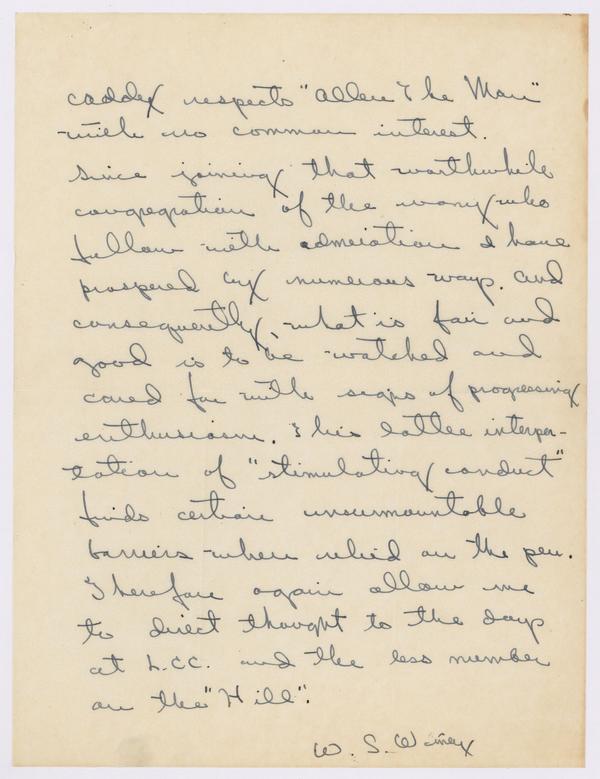 caddy respects "Allen The Man"
with no common interest.
Since joining that worthwhile
congregation of the many who
follow with admiration I have
prospered by numerous ways. And
consequently, what is fair and
good is to be watched and
cared for with signs of progressing
enthusiasm. This latter interper-
tation of "stimulating conduct"
finds certain unsurmountable
barriers when relied on the pen.
Therefore again allow me
to direct thought to the days
at L.C.C. and the less number
on the "Hill".
W. S.